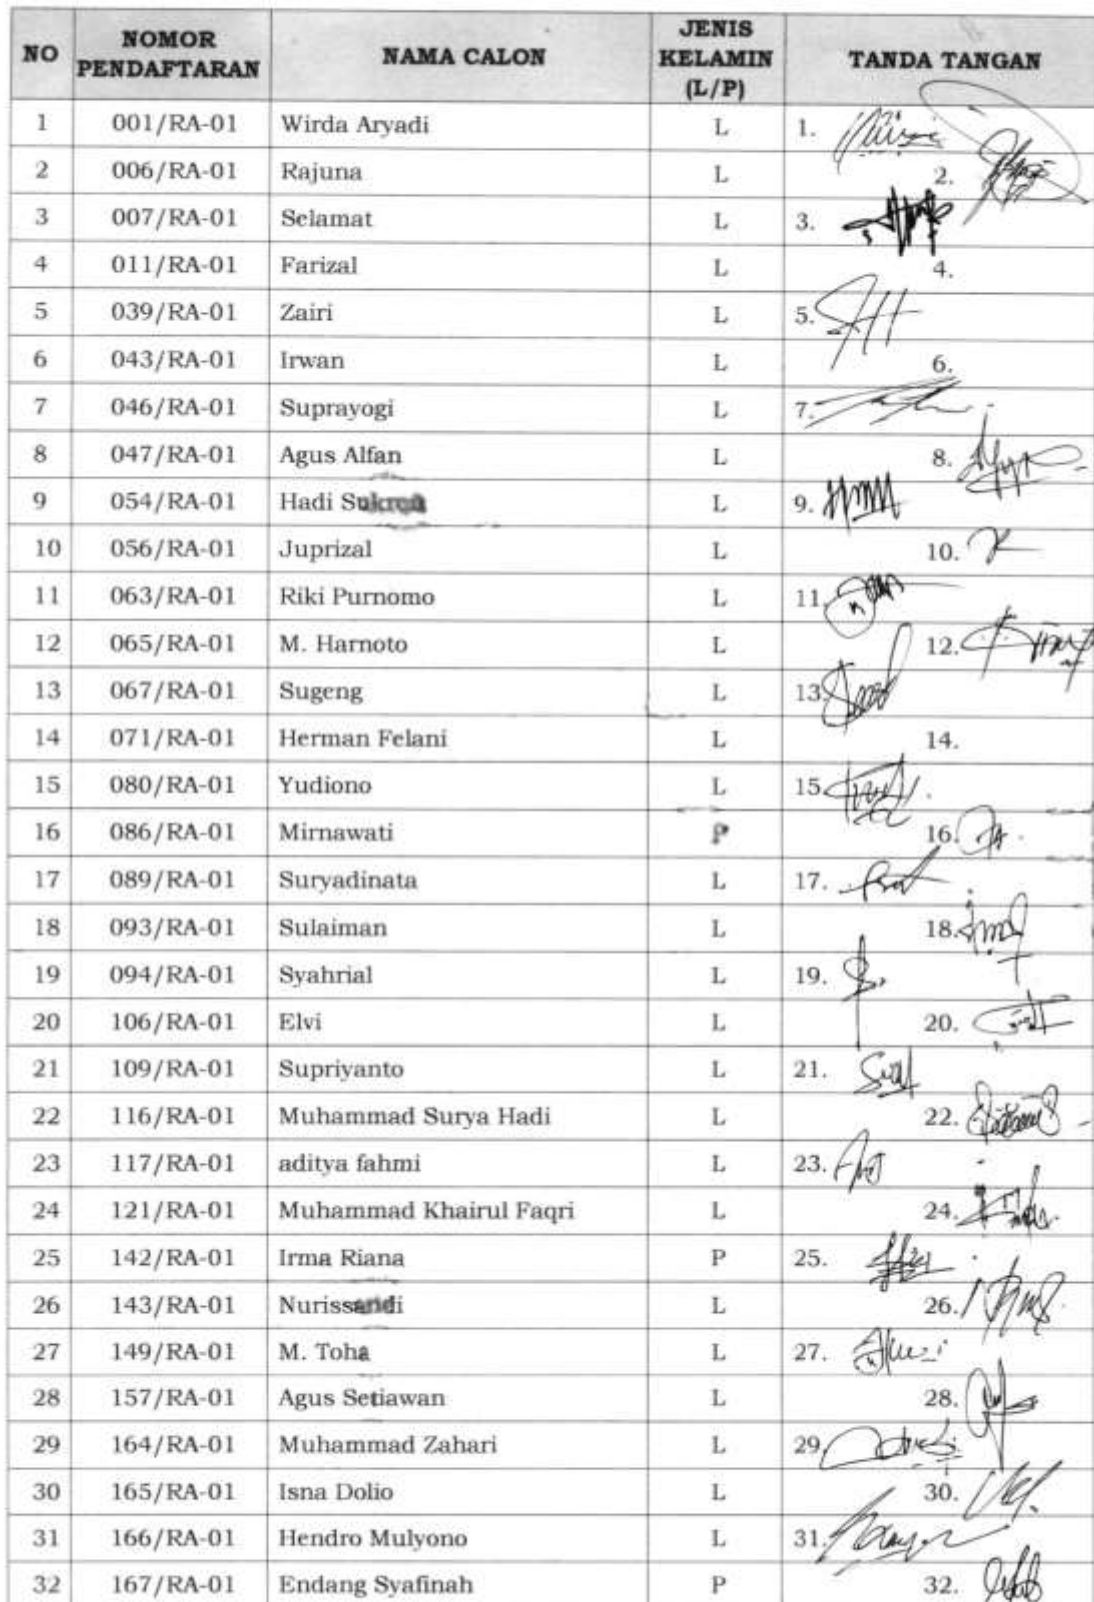 NO NOMOR PENDAFTARAN NAMA CALON JENIS KELAMIN (L/P) TANDA TANGAN
1 001/RA-01 Wirda Aryadi L 1.
2 006/RA-01 Rajuna L 2.
3 007/RA-01 Selamat L 3.
4 011/RA-01 Farizal L 4.
5 039/RA-01 Zairi L 5.
6 043/RA-01 Irwan L 6.
7 046/RA-01 Suprayogi L 7.
8 047/RA-01 Agus Alfan L 8.
9 054/RA-01 Hadi L 9.
10 056/RA-01 Juprizal L 10.
11 063/RA-01 Riki Purnomo L 11.
12 065/RA-01 M. Harnoto L 12.
13 067/RA-01 Sugeng L 13.
14 071/RA-01 Herman Felani L 14.
15 080/RA-01 Yudiono L 15.
16 086/RA-01 Mirnawati P 16.
17 089/RA-01 Suryadinata L 17.
18 093/RA-01 Sulaiman L 18.
19 094/RA-01 Syahrial L 19.
20 106/RA-01 Elvi L 20.
21 109/RA-01 Supriyanto L 21.
22 116/RA-01 Muhammad Surya Hadi L 22.
23 117/RA-01 aditya fahmi L 23.
24 121/RA-01 Muhammad Khairul Faqri L 24.
25 142/RA-01 Irma Riana P 25.
26 143/RA-01 Nurissandi L 26.
27 149/RA-01 M. Toha L 27.
28 157/RA-01 Agus Setiawan L 28.
29 164/RA-01 Muhammad Zahari L 29.
30 165/RA-01 Isna Dolio L 30.
31 166/RA-01 Hendro Mulyono L 31.
32 167/RA-01 Endang Syafinah P 32.